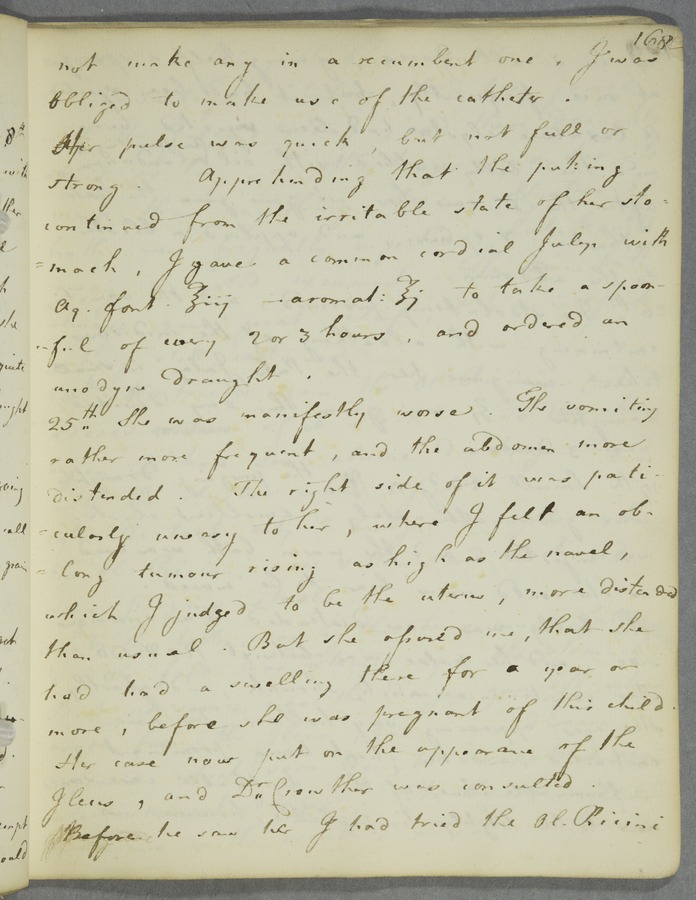 168
not make any in a recumbent one, I was
obliged to make use of the catheter.
Her pulse was quick, but not full or
strong. Apprehending that the puking
continued from the irritable state of her sto=
=mach, I gave a common cordial Julep with
Aq. font. ℥iij —aromat: ℥j to take a spoon-
-ful of every 2 or 3 hours, and ordered an
anodyne draught.
25th She was manifestly worse. The vomiting
rather more frequent, and the abdomen more
distended. The right side of it was pati-
=cularly uneasy to her, where I felt an ob-
=long tumour rising as high as the navel,
which I judged to be the uterus, more distended
than usual. But she assured me, that she
had had a swelling there for a year or
more, before she was pregnant of this child.
Her case now put on the appearance of the
Ileus, and Dr. Crowther was consulted.
Before he saw her I had tried the Ol. Ricini